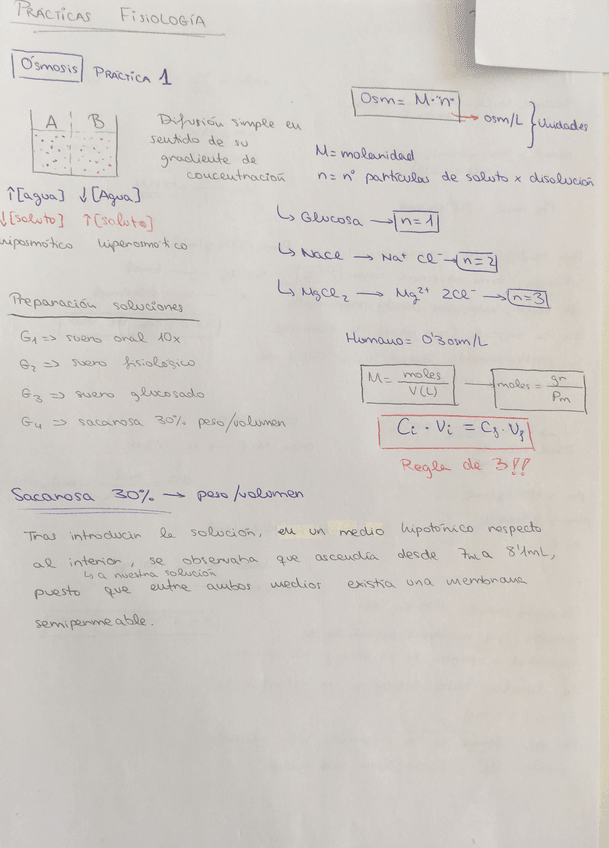 PRÁCTICAS FISIOLOGÍA
Ósmosis PRÁCTICA 1
A B
Difusión simple en
sentido de su
gradiente de
concentración
↑[agua] ↓[Agua]
↓[soluto] ↑[soluto]
hiposmótico hiperosmótico
Osm = M·"n"
→ osm/L } Unidades
M = molaridad
n = nº partículas de soluto x disolución
↳ Glucosa → n=1
↳ NaCl → Na⁺ Cl⁻ → n=2
↳ MgCl₂ → Mg²⁺ 2Cl⁻ → n=3
Humano = 0'3 osm/L
M = moles / V(L) → moles = gr / Pm
Ci · Vi = Cf · Vf
Regla de 3!!
Preparación soluciones
G1 => suero oral 10x
G2 => suero fisiológico
G3 => suero glucosado
G4 => sacarosa 30% peso/volumen
Sacarosa 30% → peso/volumen
Tras introducir la solución, en un medio hipotónico respecto
al interior, se observaba que ascendía desde 7mL a 8'1mL,
↳ a nuestra solución
puesto que entre ambos medios existía una membrana
semipermeable.